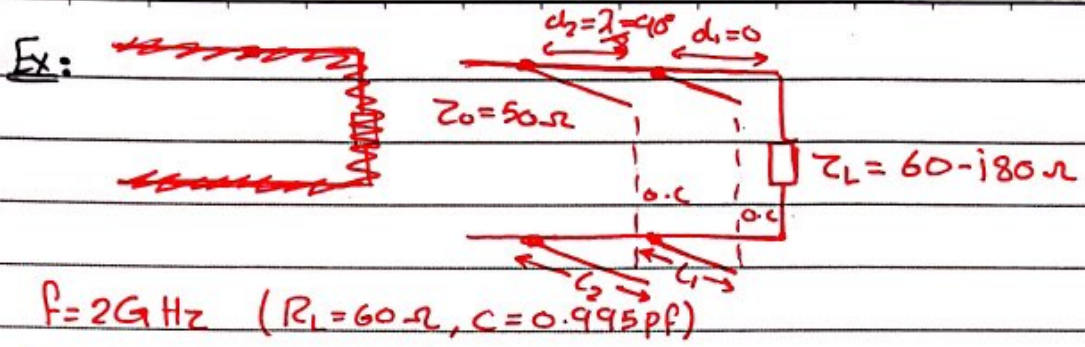 Ex:
d₂=λ/8=90° d₁=0
Z₀=50Ω
Z_L=60-j80Ω
o.c
o.c
l₂ l₁
f=2GHz (R_L=60Ω, C=0.995pf)